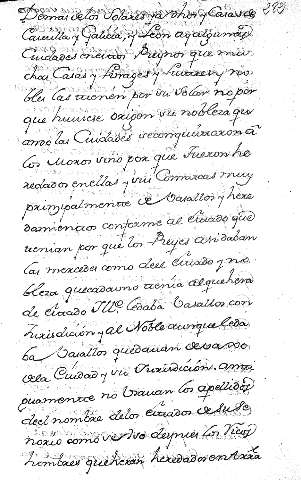 393
Demas de los Solares ya dhos y Casas de
Castilla y Galicia, y Leon ay algunas
Ciudades en estos Reynos que mu
chas Casas y Linages y no
bles las tienen por su Solar no por
que huuiese origen su nobleza qu
ando las Ciudades se conquistaron a
los Moros sino por que fueron he
redados en ellas y sus Comarcas muy
principalmente de Vasallos y here
damientos conforme al estado que
tenian por que los Reyes asi daban
las mercedes como de el estado y no
bleza que cada uno tenia al que hera
de estado Ille. le daba Vasallos con
Jurisdicion y al Noble aunque le da
ba Vasallos quedauan debaxo
de la Ciudad y su Jurisdicion. anti
guamente no Vsauan los apellidos
del nombre de los estados de su Se
ñorio como se vso despues los Ricos
hombres que heran heredados en